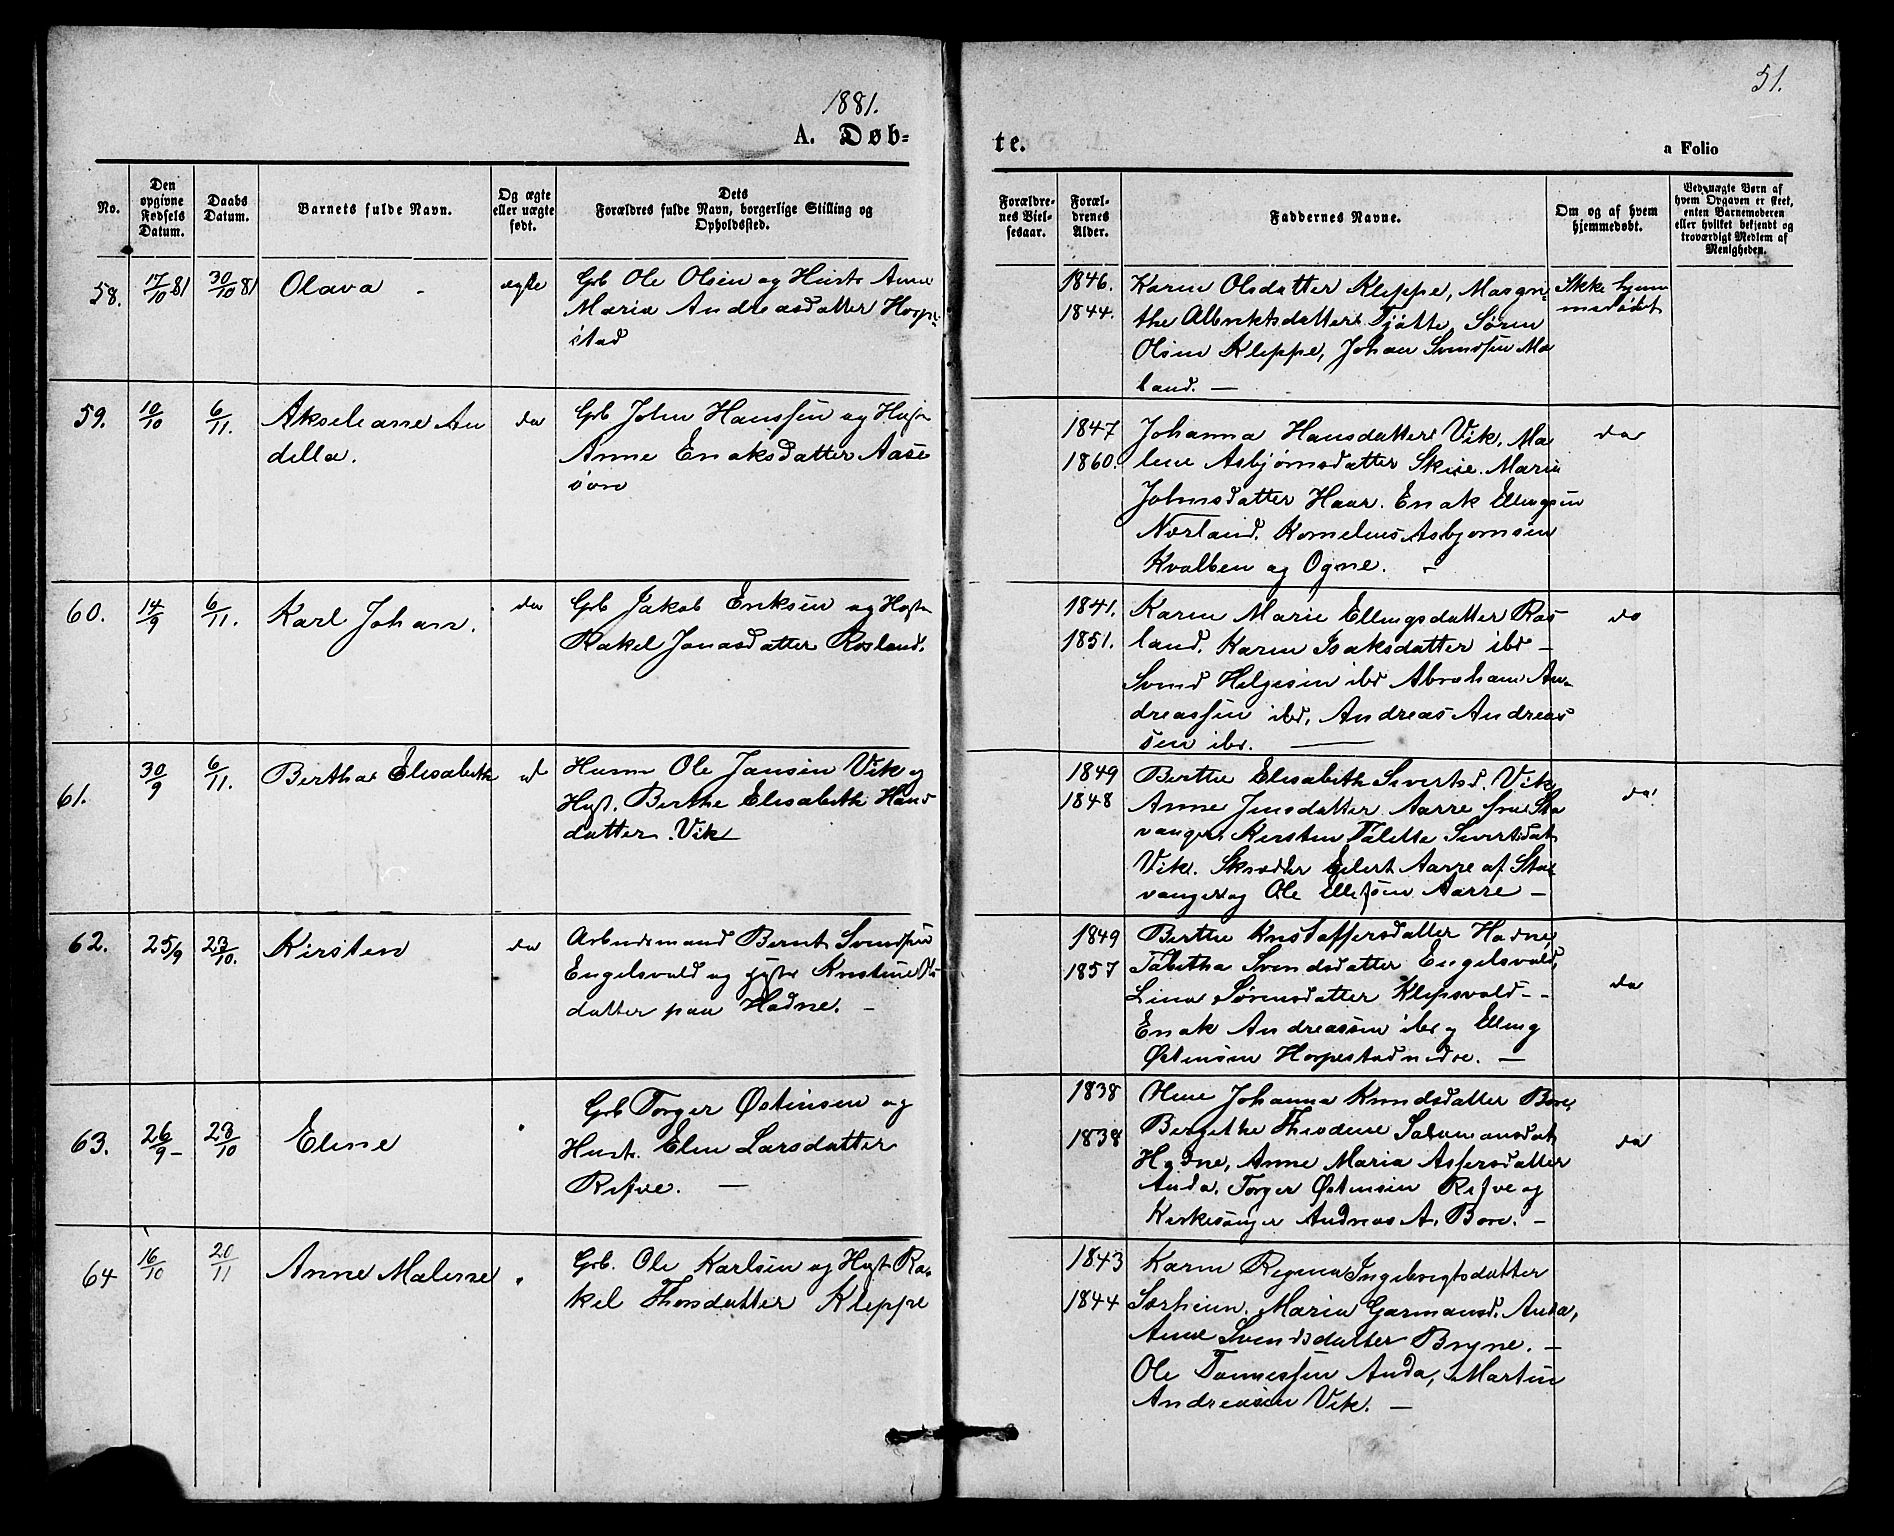 1881.
51.
A. Døb=
te.
a Folio
No.
Den opgivne Fødsels Datum.
Daabs Datum.
Barnets fulde Navn.
Og ægte eller uægte født.
Dets Forældres fulde Navn, borgerlige Stilling og Opholdssted.
Forældrenes Vielsesaar.
Forældrenes Alder.
Faddernes Navne.
Om og af hvem hjemmedøbt.
Ved uægte Børn af hvem Opgaven er skeet, enten Barnemoderen eller hvilket bekjendt og troværdigt Medlem af Menigheden.
58.
17/10 81
30/10 81
Olava
ægte
Grb Ole Olsen og Hustr Anne
Maria Andreasdatter Horpe-
stad
1846.
1844.
Karen Olsdatter Kleppe, Margre-
the Albriktsdatter Tjøtte, Søren
Olsen Kleppe, Johan Svendsen Mæ
land. —
Ikke hjem
medøbt
59.
10/10
6/11.
Akseleane An
della.
do
Grb John Hanssen og Hust
Anne Enoksdatter Aase
1847
1860.
Johanna Hansdatter Vik, Ma
lene Asbjørnsdatter Skeie. Maria
Johnsdatter Haar. Enok Ellingsen
Nærland. Kornelius Asbjørnsen
Kvalben og Ogne. -
do
60.
14/9
6/11.
Karl Johan.
do
Grb Jakob Eriksen og Hust
Rakel Jonasdatter Rosland.
1841.
1851.
Karen Marie Ellingsdatter Ros
land. Karen Isaksdatter ibd —
Svend Helgesen ibd Abraham An-
dreassen ibd. Andreas Andreas
sen ibd. —
do
61.
30/9
6/11.
Bertha Elisabeth
do
Husm Ole Jansen Vik og
Hust. Berthe Elisabeth Hans
datter Vik
1849
1848
Berthe Elisabeth Sivertsd. Vik,
Anne Jensdatter Aarre fra Sta
vanger, Kirsten Talette Sivertsdat
Vik. Skrædder Eilert Aarre af Sta
vanger og Ole Ellefsen Aarre —
do
62.
25/9
23/10.
Kirsten
do
Arbeidsmand Bernt Svendsen
Engelsvold og Hustr Kristine Ols
datter paa Hodne. —
1849
1857
Berthe Kristoffersdatter Hodne,
Tabitha Svendsdatter Engelsvold,
Lina Sørensdatter Klepsvold - -
Enok Andreassen ibd og Elling
Østensen Horpestad nedre. —
do
63.
26/9 -
23/10
Eline
Grb Torger Østensen og
Hustr. Elen Larsdatter
Refve. —
1838
1838
Olene Johanna Knudsdatter Bore,
Bergithe Theodine Salomonsdat
Hodne, Anne Maria Asgersdatter
Anda. Torger Østensen Refve og
Kirkesanger Andreas A. Bore. —
do
64
16/10
20/11
Anne Malene
Grb. Ole Karlsen og Hust Ra-
kel Thorsdatter Kleppe
1843
1844
Karen Regina Ingebrigtsdatter
Sørheim. Maria Garmansd. Anda,
Anne Svendsdatter Bryne. —
Ole Tønnessen Anda, Martin
Andreasen Vik. —